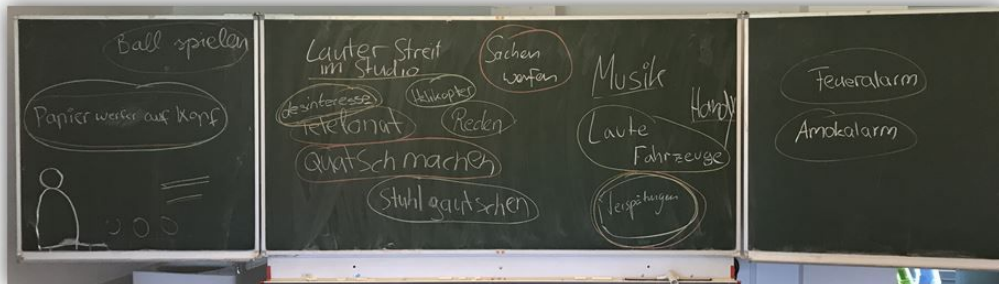 Ball spielen
Papier werfen auf Kopf
Lauter Streit
im Studio
desinteresse
Helikopter
Telefonat
Reden
Quatsch machen
Stuhl gautschen
Sachen
werfen
Musik
Handy
Laute
Fahrzeuge
Verspätungen
Feueralarm
Amokalarm